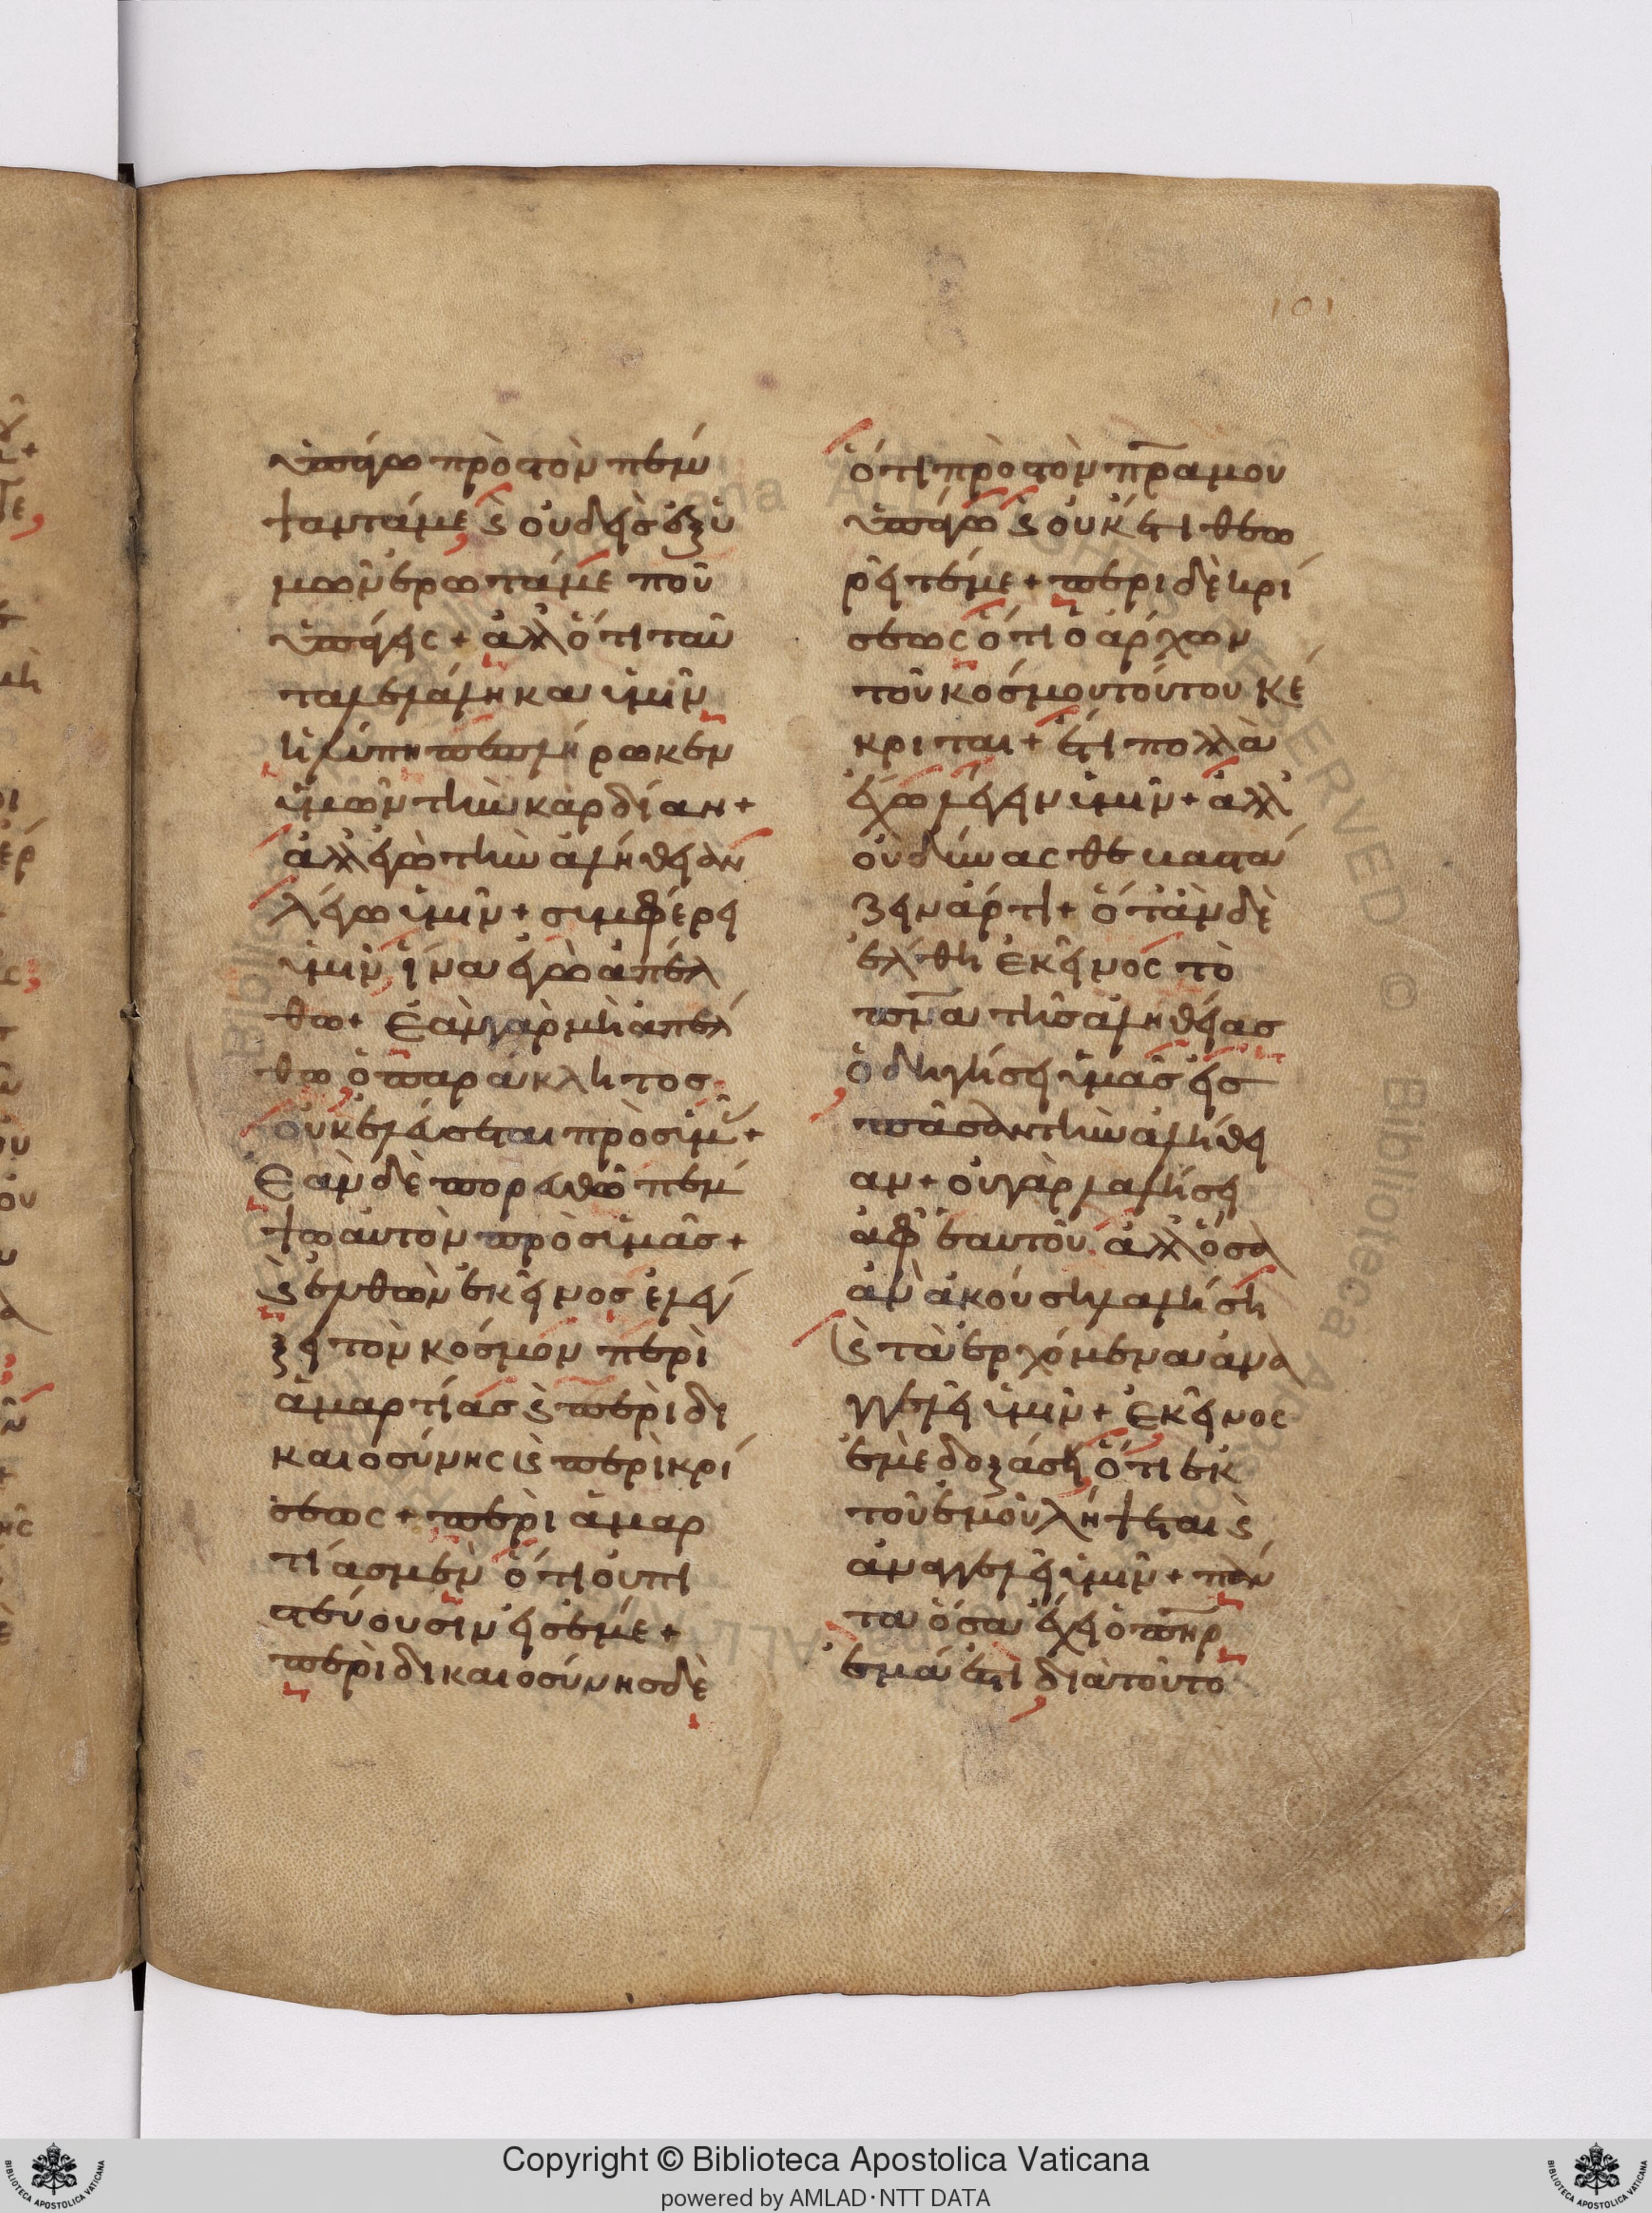 101
ὑπάγω πρὸς τὸν πέμ
ψαντά με, ϗ οὐδεὶς ἐξ ὑ
μῶν ἐρωτά με ποῦ
ὑπάγεις + ἀλλ ὅτι ταῦ
τα λελάληκα ὑμῖν
ἡ λύπη πεπλήρωκεν
ὑμῶν τὴν καρδίαν +
ἀλλ ἐγὼ τὴν ἀλήθειαν
λέγω ὑμῖν + συμφέρει
ὑμῖν ἵνα ἐγὼ ἀπέλ
θω + Ἐὰν γὰρ μὴ ἀπέλ
θω ὁ παράκλητος
οὐκ ἐλεύσεται πρὸς ὑμ +
Ἐὰν δὲ πορευθῶ πέμ
ψω αὐτὸν πρὸς ὑμᾶς +
ϗ ἐλθὼν ἐκεῖνος ἐλέγ
ξει τὸν κόσμον περὶ
ἁμαρτίας ϗ περὶ δι
καιοσύνης ϗ περὶ κρί
σεως + περὶ ἁμαρ
τίας μὲν ὅτι οὐ πι
στεύουσιν εἰς ἐμέ +
περὶ δικαιοσύνης δὲ
ὅτι πρὸς τὸν πρα μου
ὑπάγω ϗ οὐκέτι θεω
ρεῖτέ με + περι δὲ κρί
σεως ὅτι ὁ ἄρχων
τοῦ κόσμου τούτου κέ
κριται + ἔτι πολλὰ
ἔχω λέγειν ὑμῖν + ἀλλ
οὐ δύνασθε βαστά
ζειν ἄρτι + ὅτὰν δὲ
ἔλθη ἐκεῖνος τὸ
πνα τῆς ἀληθείας
ὁδηγήσει ὑμᾶς εἰς
πᾶσαν τὴν ἀλήθει
αν + οὐ γὰρ λαλήσει
ἀφ ἑαυτοῦ. ἀλλ ὅσα
ἂν ἀκούση λαλήση
ϗ τὰ ἐρχόμενα ἀνα
γγελεῖ ὑμῖν + Ἐκεῖνος
ἐμὲ δοξάση, ὅτι ἐκ
τοῦ ἐμοῦ λήψεται ϗ
ἀναγγελεῖ ὑμῖν + πάν
τα ὅσα ἔχει ὁ πηρ
ἐμά ἐστὶ διὰ τοῦτο
Copyright © Biblioteca Apostolica Vaticana
powered by AMLAD·NTT DATA